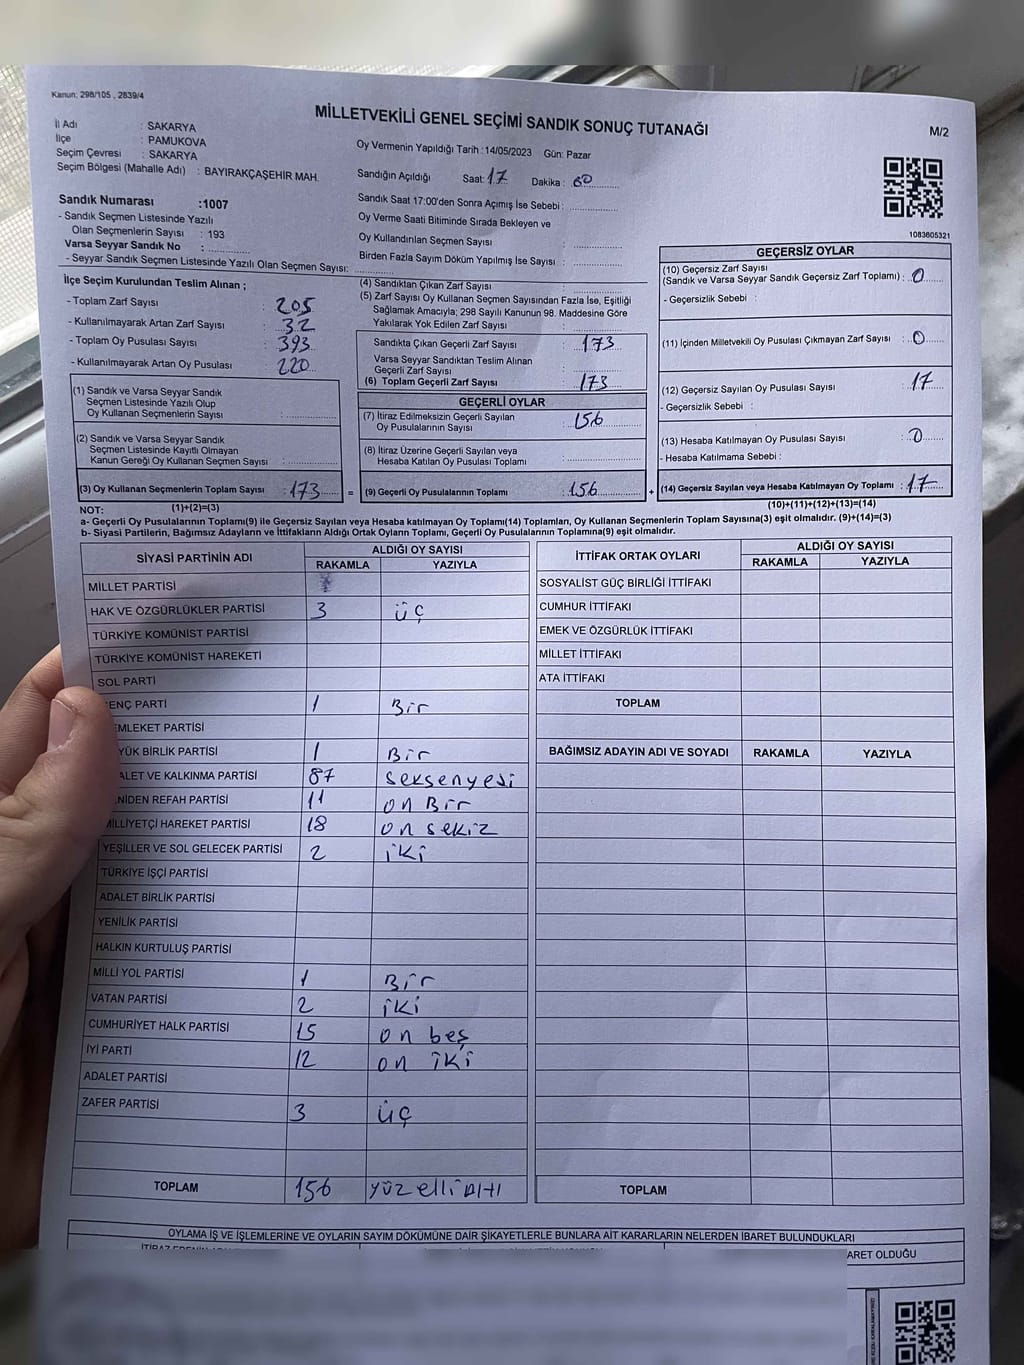 Kanun: 298/105 , 2839/4
MİLLETVEKİLİ GENEL SEÇİMİ SANDIK SONUÇ TUTANAĞI
M/2
İl Adı : SAKARYA
İlçe : PAMUKOVA
Seçim Çevresi : SAKARYA
Seçim Bölgesi (Mahalle Adı) : BAYIRAKÇAŞEHİR MAH.
Sandık Numarası :1007
- Sandık Seçmen Listesinde Yazılı
Olan Seçmenlerin Sayısı : 193
Varsa Seyyar Sandık No :
- Seyyar Sandık Seçmen Listesinde Yazılı Olan Seçmen Sayısı:
Oy Vermenin Yapıldığı Tarih :14/05/2023 Gün: Pazar
Sandığın Açıldığı Saat: 17 Dakika :
Sandık Saat 17:00'den Sonra Açımış İse Sebebi :
Oy Verme Saati Bitiminde Sırada Bekleyen ve
Oy Kullandırılan Seçmen Sayısı :
Birden Fazla Sayım Döküm Yapılmış İse Sayısı :
1083605321
İlçe Seçim Kurulundan Teslim Alınan ;
- Toplam Zarf Sayısı : 205
- Kullanılmayarak Artan Zarf Sayısı : 32
- Toplam Oy Pusulası Sayısı : 393
- Kullanılmayarak Artan Oy Pusulası : 220
(1) Sandık ve Varsa Seyyar Sandık
Seçmen Listesinde Yazılı Olup
Oy Kullanan Seçmenlerin Sayısı :
(2) Sandık ve Varsa Seyyar Sandık
Seçmen Listesinde Kayıtlı Olmayan
Kanun Gereği Oy Kullanan Seçmen Sayısı :
(3) Oy Kullanan Seçmenlerin Toplam Sayısı : 173 =
(1)+(2)=(3)
(4) Sandıktan Çıkan Zarf Sayısı :
(5) Zarf Sayısı Oy Kullanan Seçmen Sayısından Fazla İse, Eşitliği
Sağlamak Amacıyla; 298 Sayılı Kanunun 98. Maddesine Göre
Yakılarak Yok Edilen Zarf Sayısı :
Sandıkta Çıkan Geçerli Zarf Sayısı : 173
Varsa Seyyar Sandıktan Teslim Alınan
Geçerli Zarf Sayısı :
(6) Toplam Geçerli Zarf Sayısı : 173
GEÇERLİ OYLAR
(7) İtiraz Edilmeksizin Geçerli Sayılan
Oy Pusulalarının Sayısı : 156
(8) İtiraz Üzerine Geçerli Sayılan veya
Hesaba Katılan Oy Pusulası Toplamı :
(9) Geçerli Oy Pusulalarının Toplamı : 156 +
GEÇERSİZ OYLAR
(10) Geçersiz Zarf Sayısı
(Sandık ve Varsa Seyyar Sandık Geçersiz Zarf Toplamı) : 0
- Geçersizlik Sebebi :
(11) İçinden Milletvekili Oy Pusulası Çıkmayan Zarf Sayısı : 0
(12) Geçersiz Sayılan Oy Pusulası Sayısı : 17
- Geçersizlik Sebebi :
(13) Hesaba Katılmayan Oy Pusulası Sayısı : 0
- Hesaba Katılmama Sebebi :
(14) Geçersiz Sayılan veya Hesaba Katılmayan Oy Toplamı : 17
(10)+(11)+(12)+(13)=(14)
NOT:
a- Geçerli Oy Pusulalarının Toplamı(9) ile Geçersiz Sayılan veya Hesaba katılmayan Oy Toplamı(14) Toplamları, Oy Kullanan Seçmenlerin Toplam Sayısına(3) eşit olmalıdır. (9)+(14)=(3)
b- Siyasi Partilerin, Bağımsız Adayların ve İttifakların Aldığı Ortak Oyların Toplamı, Geçerli Oy Pusulalarının Toplamına(9) eşit olmalıdır.
SİYASİ PARTİNİN ADI ALDIĞI OY SAYISI
RAKAMLA YAZIYLA
MİLLET PARTİSİ
HAK VE ÖZGÜRLÜKLER PARTİSİ 3 üç
TÜRKİYE KOMÜNİST PARTİSİ
TÜRKİYE KOMÜNİST HAREKETİ
SOL PARTİ
ENÇ PARTİ 1 Bir
EMLEKET PARTİSİ
YÜK BİRLİK PARTİSİ 1 Bir
ALET VE KALKINMA PARTİSİ 87 seksenyedi
NİDEN REFAH PARTİSİ 11 on Bir
MİLLİYETÇİ HAREKET PARTİSİ 18 on sekiz
YEŞİLLER VE SOL GELECEK PARTİSİ 2 iki
TÜRKİYE İŞÇİ PARTİSİ
ADALET BİRLİK PARTİSİ
YENİLİK PARTİSİ
HALKIN KURTULUŞ PARTİSİ
MİLLİ YOL PARTİSİ 1 Bir
VATAN PARTİSİ 2 iki
CUMHURİYET HALK PARTİSİ 15 on beş
İYİ PARTİ 12 on iki
ADALET PARTİSİ
ZAFER PARTİSİ 3 üç
TOPLAM 156 yüz elli altı
İTTİFAK ORTAK OYLARI ALDIĞI OY SAYISI
RAKAMLA YAZIYLA
SOSYALİST GÜÇ BİRLİĞİ İTTİFAKI
CUMHUR İTTİFAKI
EMEK VE ÖZGÜRLÜK İTTİFAKI
MİLLET İTTİFAKI
ATA İTTİFAKI
TOPLAM
BAĞIMSIZ ADAYIN ADI VE SOYADI RAKAMLA YAZIYLA
TOPLAM
OYLAMA İŞ VE İŞLEMLERİNE VE OYLARIN SAYIM DÖKÜMÜNE DAİR ŞİKAYETLERLE BUNLARA AİT KARARLARIN NELERDEN İBARET BULUNDUKLARI
ARET OLDUĞU